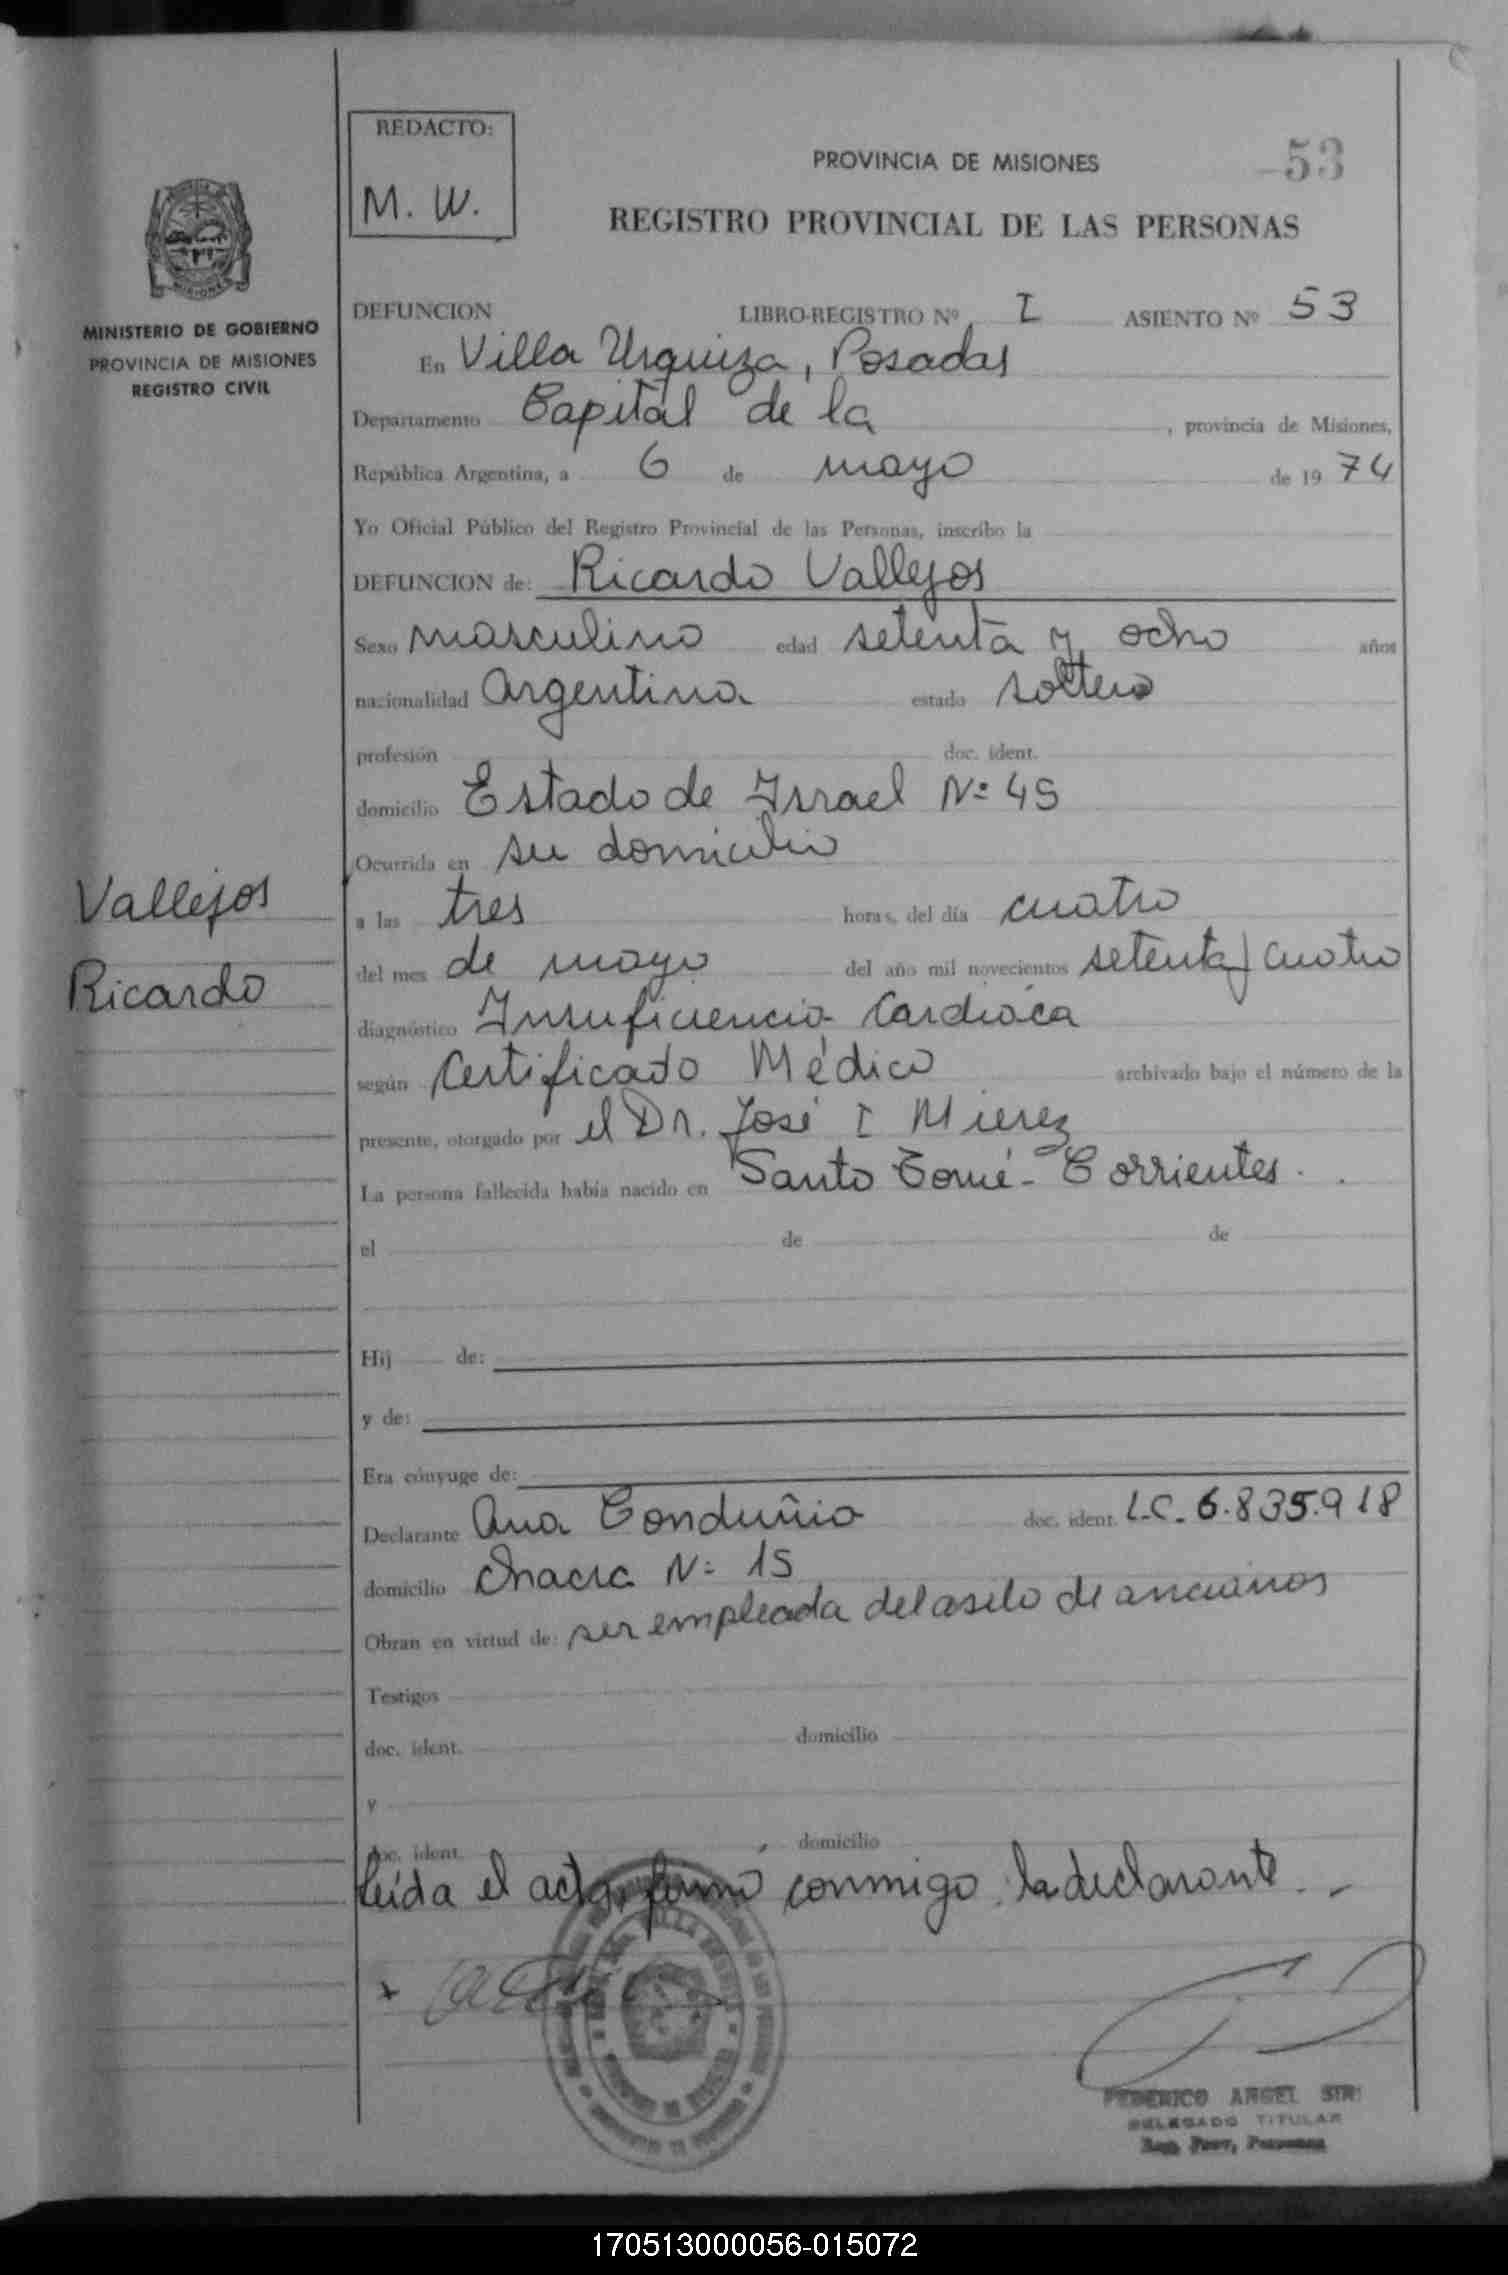 REDACTO:
M. W.
PROVINCIA DE MISIONES
53
REGISTRO PROVINCIAL DE LAS PERSONAS
MINISTERIO DE GOBIERNO
PROVINCIA DE MISIONES
REGISTRO CIVIL
DEFUNCION LIBRO-REGISTRO Nº I ASIENTO Nº 53
En Villa Urquiza, Posadas
Departamento Capital de la , provincia de Misiones,
República Argentina, a 6 de mayo de 1974
Yo Oficial Público del Registro Provincial de las Personas, inscribo la
DEFUNCION de: Ricardo Vallejos
Sexo masculino edad setenta y ocho años
nacionalidad argentina estado soltero
profesión doc. ident.
domicilio Estado de Israel Nº 45
Ocurrida en su domicilio
Vallejos
Ricardo
a las tres horas, del día cuatro
del mes de mayo del año mil novecientos setenta y cuatro
diagnóstico Insuficiencia Cardiaca
según Certificado Médico archivado bajo el número de la
presente, otorgado por el Dr. José I Mierez
La persona fallecida había nacido en Santo Tomé - Corrientes.
el de de
Hij de:
y de:
Era cónyuge de:
Declarante Ana Conduñio doc. ident. L.C. 6.835.918
domicilio Chacra Nº 15
Obran en virtud de: ser empleada del asilo de ancianos
Testigos
doc. ident. domicilio
y
doc. ident. domicilio
Leída el acta, firmó conmigo la declarante. -
FEDERICO ANGEL
DELEGADO TITULAR
Reg. Prov. Personas
170513000056-015072